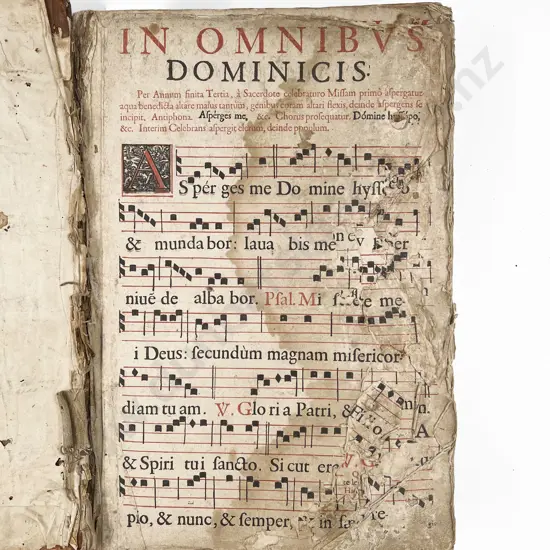 IN OMNIBVS
DOMINICIS.
Per Annum finita Tertia, à Sacerdote celebraturo Missam primò aspergatur
aqua benedicta altare maius tantùm, genibus coram altari flexis, deinde aspergens se
incipit, Antiphona. Aspérges me, &c. Chorus prosequatur. Dómine hyssopo,
&c. Interim Celebrans aspergit clerum, deinde populum.
ASpér ges me Do mine hyssopo
& munda bor: laua bis me
niué de alba bor. Psal. Mi me
i Deus: secundùm magnam misericor
diam tu am. V. Glo ri a Patri, &
& Spiri tui sancto. Si cut era
pio, & nunc, & semper, in